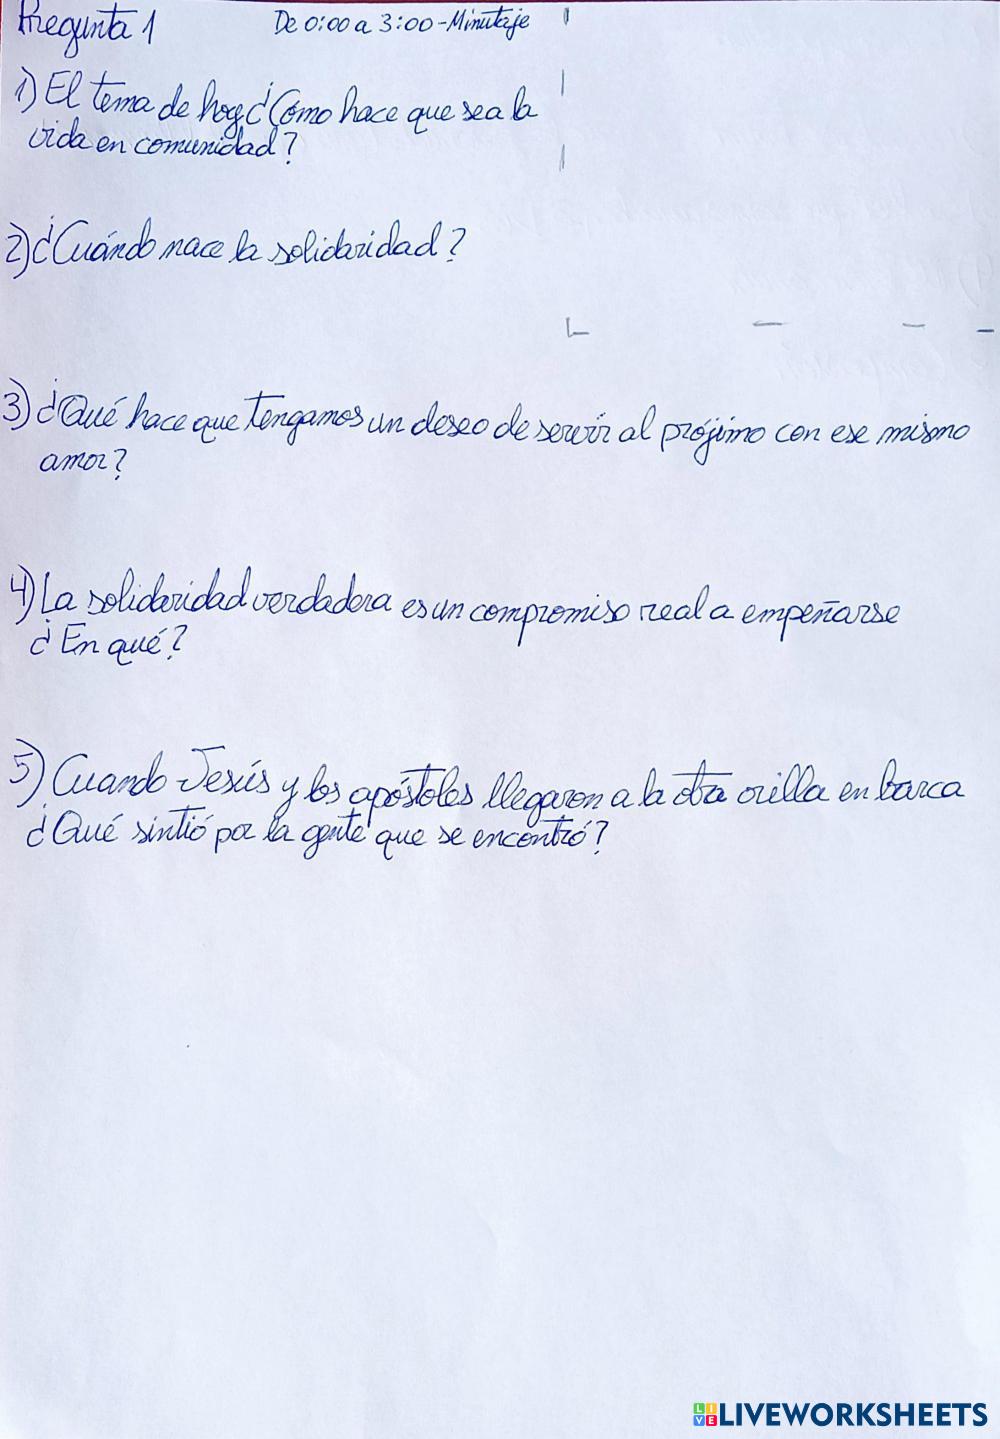 Pregunta 1 De 0:00 a 3:00-Minutaje
1) El tema de hoy ¿Cómo hace que sea la
vida en comunidad?
2) ¿Cuándo nace la solidaridad?
3) ¿Qué hace que tengamos un deseo de servir al prójimo con ese mismo
amor?
4) La solidaridad verdadera es un compromiso real a empeñarse
¿En qué?
5) Cuando Jesús y los apóstoles llegaron a la otra orilla en barca
¿Qué sintió por la gente que se encontró?
LIVEWORKSHEETS